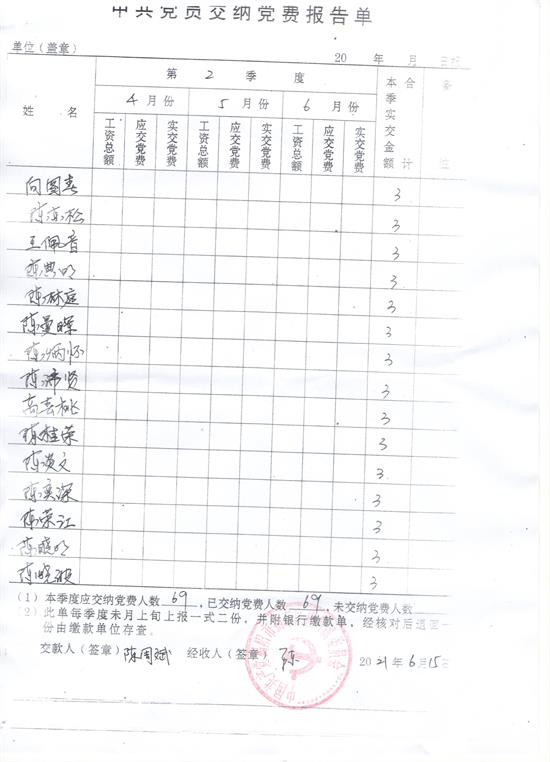 中共党员交纳党费报告单
单位（盖章） 20 年 月 日报
姓 名 第 2 季 度 本季实交金额 合计 备注
4月份 5月份 6月份
工资总额 应交党费 实交党费 工资总额 应交党费 实交党费 工资总额 应交党费 实交党费
向国春 3
陈宗松 3
王佩音 3
陈典明 3
陈林庭 3
陈曼晖 3
陈炳怀 3
陈沛贤 3
高志桃 3
陈桂荣 3
陈汉文 3
陈奕深 3
陈荣江 3
陈晓明 3
陈晓波 3
（1）本季度应交纳党费人数 69 ，已交纳党费人数 69 ，未交纳党费人数
（2）此单每季度末月上旬上报一式二份，并附银行缴款单，经核对后退回一
份由缴款单位存查。
交款人（签章）陈周斌 经收人（签章） 陈 2021年6月15日